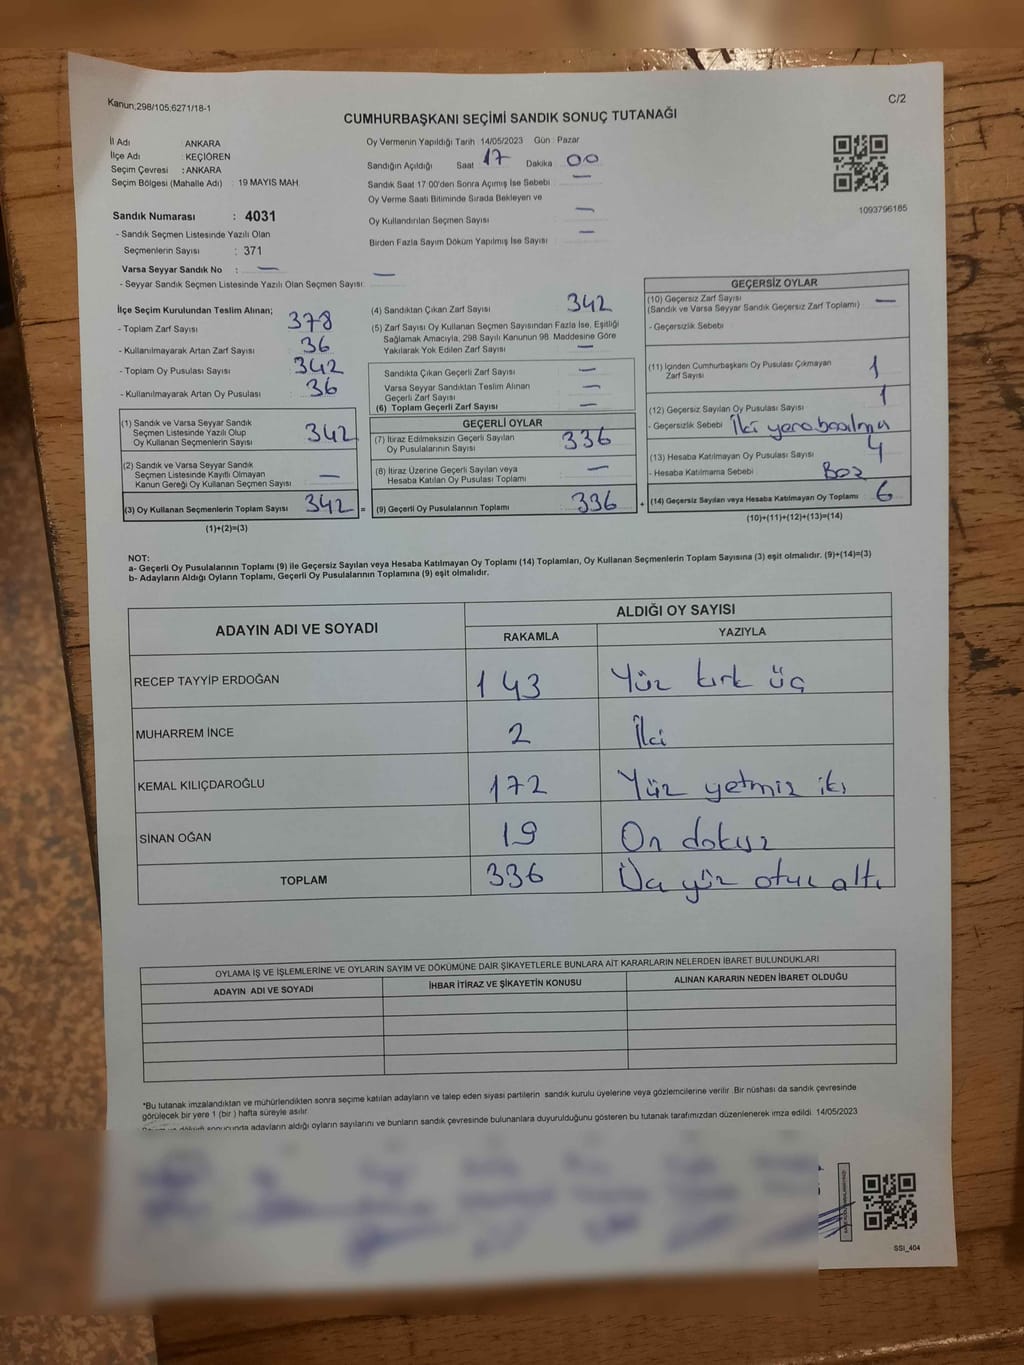 Kanun;298/105;6271/18-1
C/2
CUMHURBAŞKANI SEÇİMİ SANDIK SONUÇ TUTANAĞI
İl Adı : ANKARA
İlçe Adı : KEÇİÖREN
Seçim Çevresi : ANKARA
Seçim Bölgesi (Mahalle Adı) : 19 MAYIS MAH.
Sandık Numarası : 4031
- Sandık Seçmen Listesinde Yazılı Olan
Seçmenlerin Sayısı : 371
Varsa Seyyar Sandık No : —
- Seyyar Sandık Seçmen Listesinde Yazılı Olan Seçmen Sayısı: —
Oy Vermenin Yapıldığı Tarih 14/05/2023 Gün : Pazar
Sandığın Açıldığı Saat 17 Dakika 00
Sandık Saat 17:00'den Sonra Açımış İse Sebebi —
Oy Verme Saati Bitiminde Sırada Bekleyen ve
Oy Kullandırılan Seçmen Sayısı —
Birden Fazla Sayım Döküm Yapılmış İse Sayısı —
1093796185
İlçe Seçim Kurulundan Teslim Alınan;
- Toplam Zarf Sayısı 378
- Kullanılmayarak Artan Zarf Sayısı 36
- Toplam Oy Pusulası Sayısı 342
- Kullanılmayarak Artan Oy Pusulası 36
(1) Sandık ve Varsa Seyyar Sandık
Seçmen Listesinde Yazılı Olup
Oy Kullanan Seçmenlerin Sayısı 342
(2) Sandık ve Varsa Seyyar Sandık
Seçmen Listesinde Kayıtlı Olmayan
Kanun Gereği Oy Kullanan Seçmen Sayısı —
(3) Oy Kullanan Seçmenlerin Toplam Sayısı 342 =
(1)+(2)=(3)
(4) Sandıktan Çıkan Zarf Sayısı 342
(5) Zarf Sayısı Oy Kullanan Seçmen Sayısından Fazla İse, Eşitliği
Sağlamak Amacıyla, 298 Sayılı Kanunun 98. Maddesine Göre
Yakılarak Yok Edilen Zarf Sayısı —
Sandıkta Çıkan Geçerli Zarf Sayısı —
Varsa Seyyar Sandıktan Teslim Alınan
Geçerli Zarf Sayısı —
(6) Toplam Geçerli Zarf Sayısı —
GEÇERLİ OYLAR
(7) İtiraz Edilmeksizin Geçerli Sayılan
Oy Pusulasının Sayısı 336
(8) İtiraz Üzerine Geçerli Sayılan veya
Hesaba Katılan Oy Pusulası Toplamı —
(9) Geçerli Oy Pusulalarının Toplamı 336 +
GEÇERSİZ OYLAR
(10) Geçersiz Zarf Sayısı
(Sandık ve Varsa Seyyar Sandık Geçersiz Zarf Toplamı) —
- Geçersizlik Sebebi
(11) İçinden Cumhurbaşkanı Oy Pusulası Çıkmayan
Zarf Sayısı 1
(12) Geçersiz Sayılan Oy Pusulası Sayısı 1
- Geçersizlik Sebebi İki yere basılma
(13) Hesaba Katılmayan Oy Pusulası Sayısı 4
- Hesaba Katılmama Sebebi Boz
(14) Geçersiz Sayılan veya Hesaba Katılmayan Oy Toplamı 6
(10)+(11)+(12)+(13)=(14)
NOT:
a- Geçerli Oy Pusulalarının Toplamı (9) ile Geçersiz Sayılan veya Hesaba Katılmayan Oy Toplamı (14) Toplamları, Oy Kullanan Seçmenlerin Toplam Sayısına (3) eşit olmalıdır. (9)+(14)=(3)
b- Adayların Aldığı Oyların Toplamı, Geçerli Oy Pusulalarının Toplamına (9) eşit olmalıdır.
ADAYIN ADI VE SOYADI
ALDIĞI OY SAYISI
RAKAMLA YAZIYLA
RECEP TAYYİP ERDOĞAN 143 Yüz kırk üç
MUHARREM İNCE 2 İki
KEMAL KILIÇDAROĞLU 172 Yüz yetmiz iki
SİNAN OĞAN 19 On dokuz
TOPLAM 336 Üç yüz otuz altı
OYLAMA İŞ VE İŞLEMLERİNE VE OYLARIN SAYIM VE DÖKÜMÜNE DAİR ŞİKAYETLERLE BUNLARA AİT KARARLARIN NELERDEN İBARET BULUNDUKLARI
ADAYIN ADI VE SOYADI İHBAR İTİRAZ VE ŞİKAYETİN KONUSU ALINAN KARARIN NEDEN İBARET OLDUĞU
*Bu tutanak imzalandıktan ve mühürlendikten sonra seçime katılan adayların ve talep eden siyasi partilerin sandık kurulu üyelerine veya gözlemcilerine verilir. Bir nüshası da sandık çevresinde
görülecek bir yere 1 (bir ) hafta süreyle asılır.
döküm sonucunda adayların aldığı oyların sayılarını ve bunların sandık çevresinde bulunanlara duyurulduğunu gösteren bu tutanak tarafımızdan düzenlenerek imza edildi. 14/05/2023
SSI_404